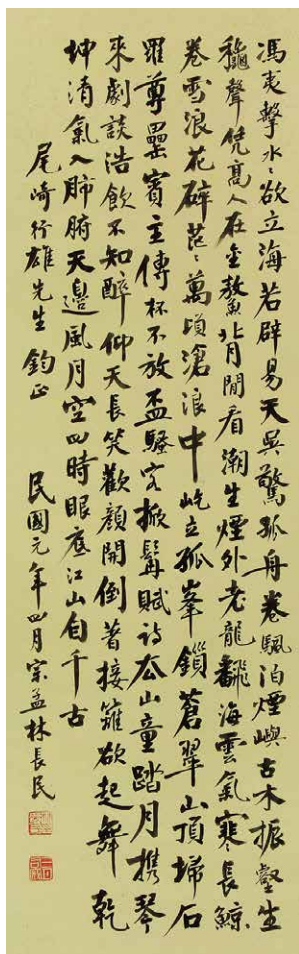 馮夷擊水水欲立海若辟易天吳驚孤舟卷颿泊煙嶼古木振壑生
龝聲凭高人在金鰲背月閒看潮生煙外老龍翻海雲氣寒長鯨
卷雪浪花碎茫茫萬頃滄浪中屹立孤峯鎖蒼翠山頂埽石
羅尊罍賓主傳杯不放盃騷客掀髯賦詩 山童踏月攜琴
來劇談浩飲不知醉仰天長笑歡顏開倒著接䍦欲起舞乾
坤清氣入肺腑天邊風月空四時眼底江山自千古
尾崎行雄先生 鈞正
民國元年四月宗孟林長民